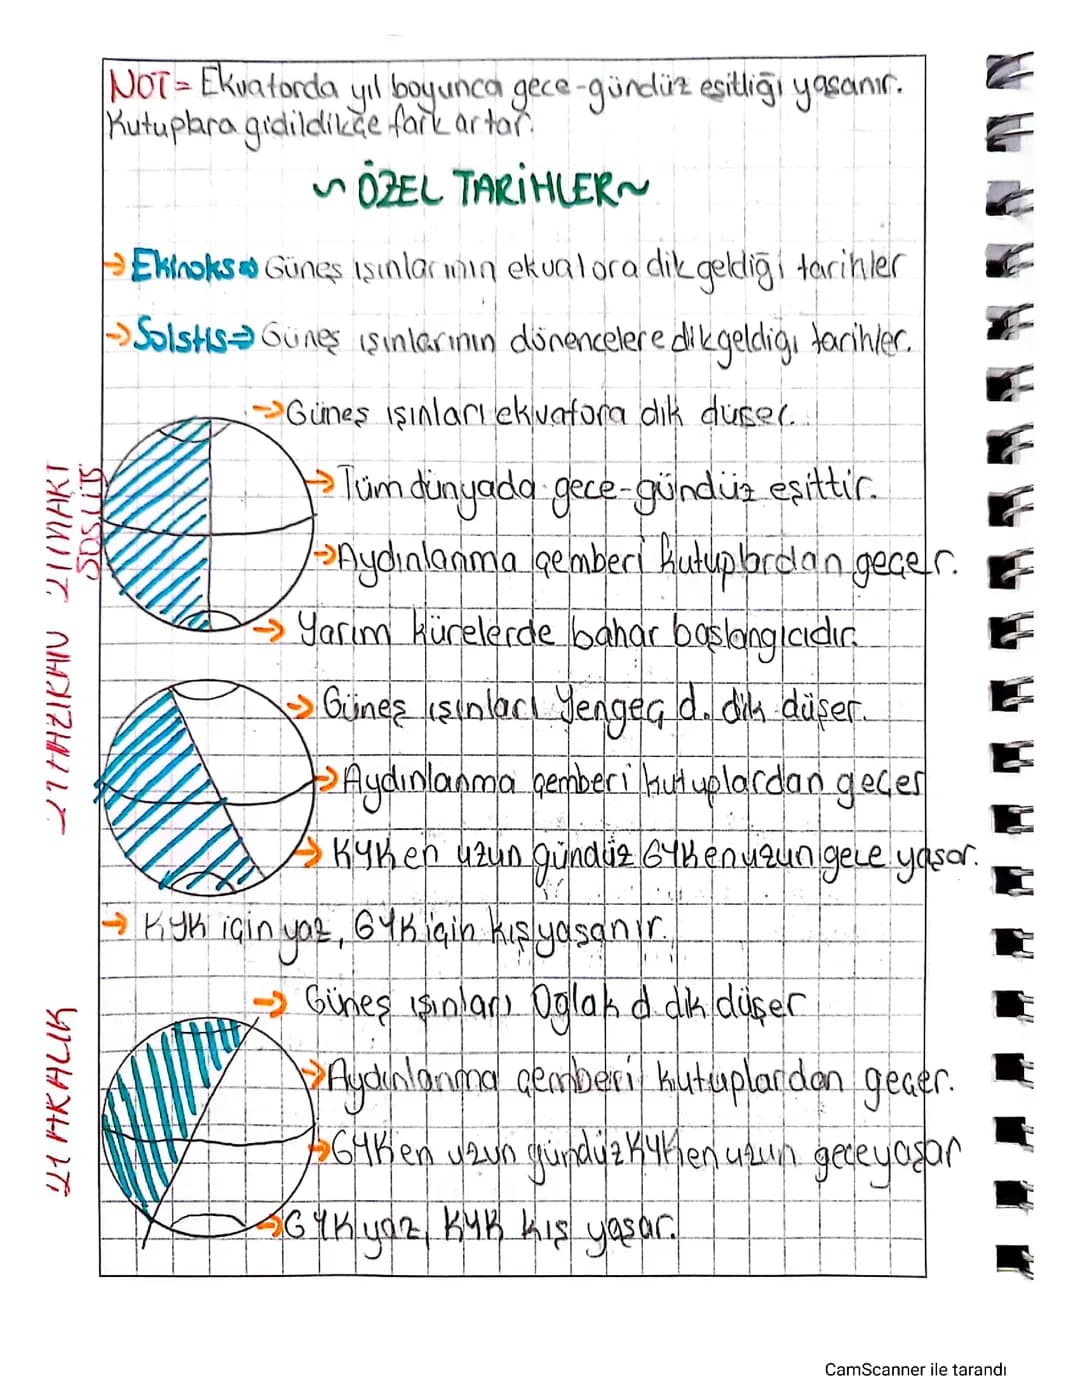 NOT= Ekvatorda yıl boyunca gece-gündüz eşitliği yaşanır.
Kutuplara gidildikçe fark artar.
~ ÖZEL TARİHLER ~
→ Ekinoks ⇒ Güneş ışınlarının ekvatora dik geldiği tarihler
→ Solstis ⇒ Güneş ışınlarının dönencelere dik geldiği tarihler.
21 MART
SOSLITS
→ Güneş ışınları ekvatora dik düşer.
→ Tüm dünyada gece-gündüz eşittir.
→ Aydınlanma çemberi kutuplardan geçer.
→ Yarım kürelerde bahar başlangıcıdır.
21 HAZIRAN
→ Güneş ışınları Yengeç d. dik düşer.
→ Aydınlanma çemberi kutuplardan geçer
→ KYK en uzun gündüz GYK en uzun gece yaşar.
→ KYK için yaz, GYK için kış yaşanır.
21 ARALIK
→ Güneş ışınları Oğlak d. dik düşer
→ Aydınlanma çemberi kutuplardan geçer.
→ GYK en uzun gündüz KYK en uzun gece yaşar
→ GYK yaz, KYK kış yaşar.
CamScanner ile tarandı